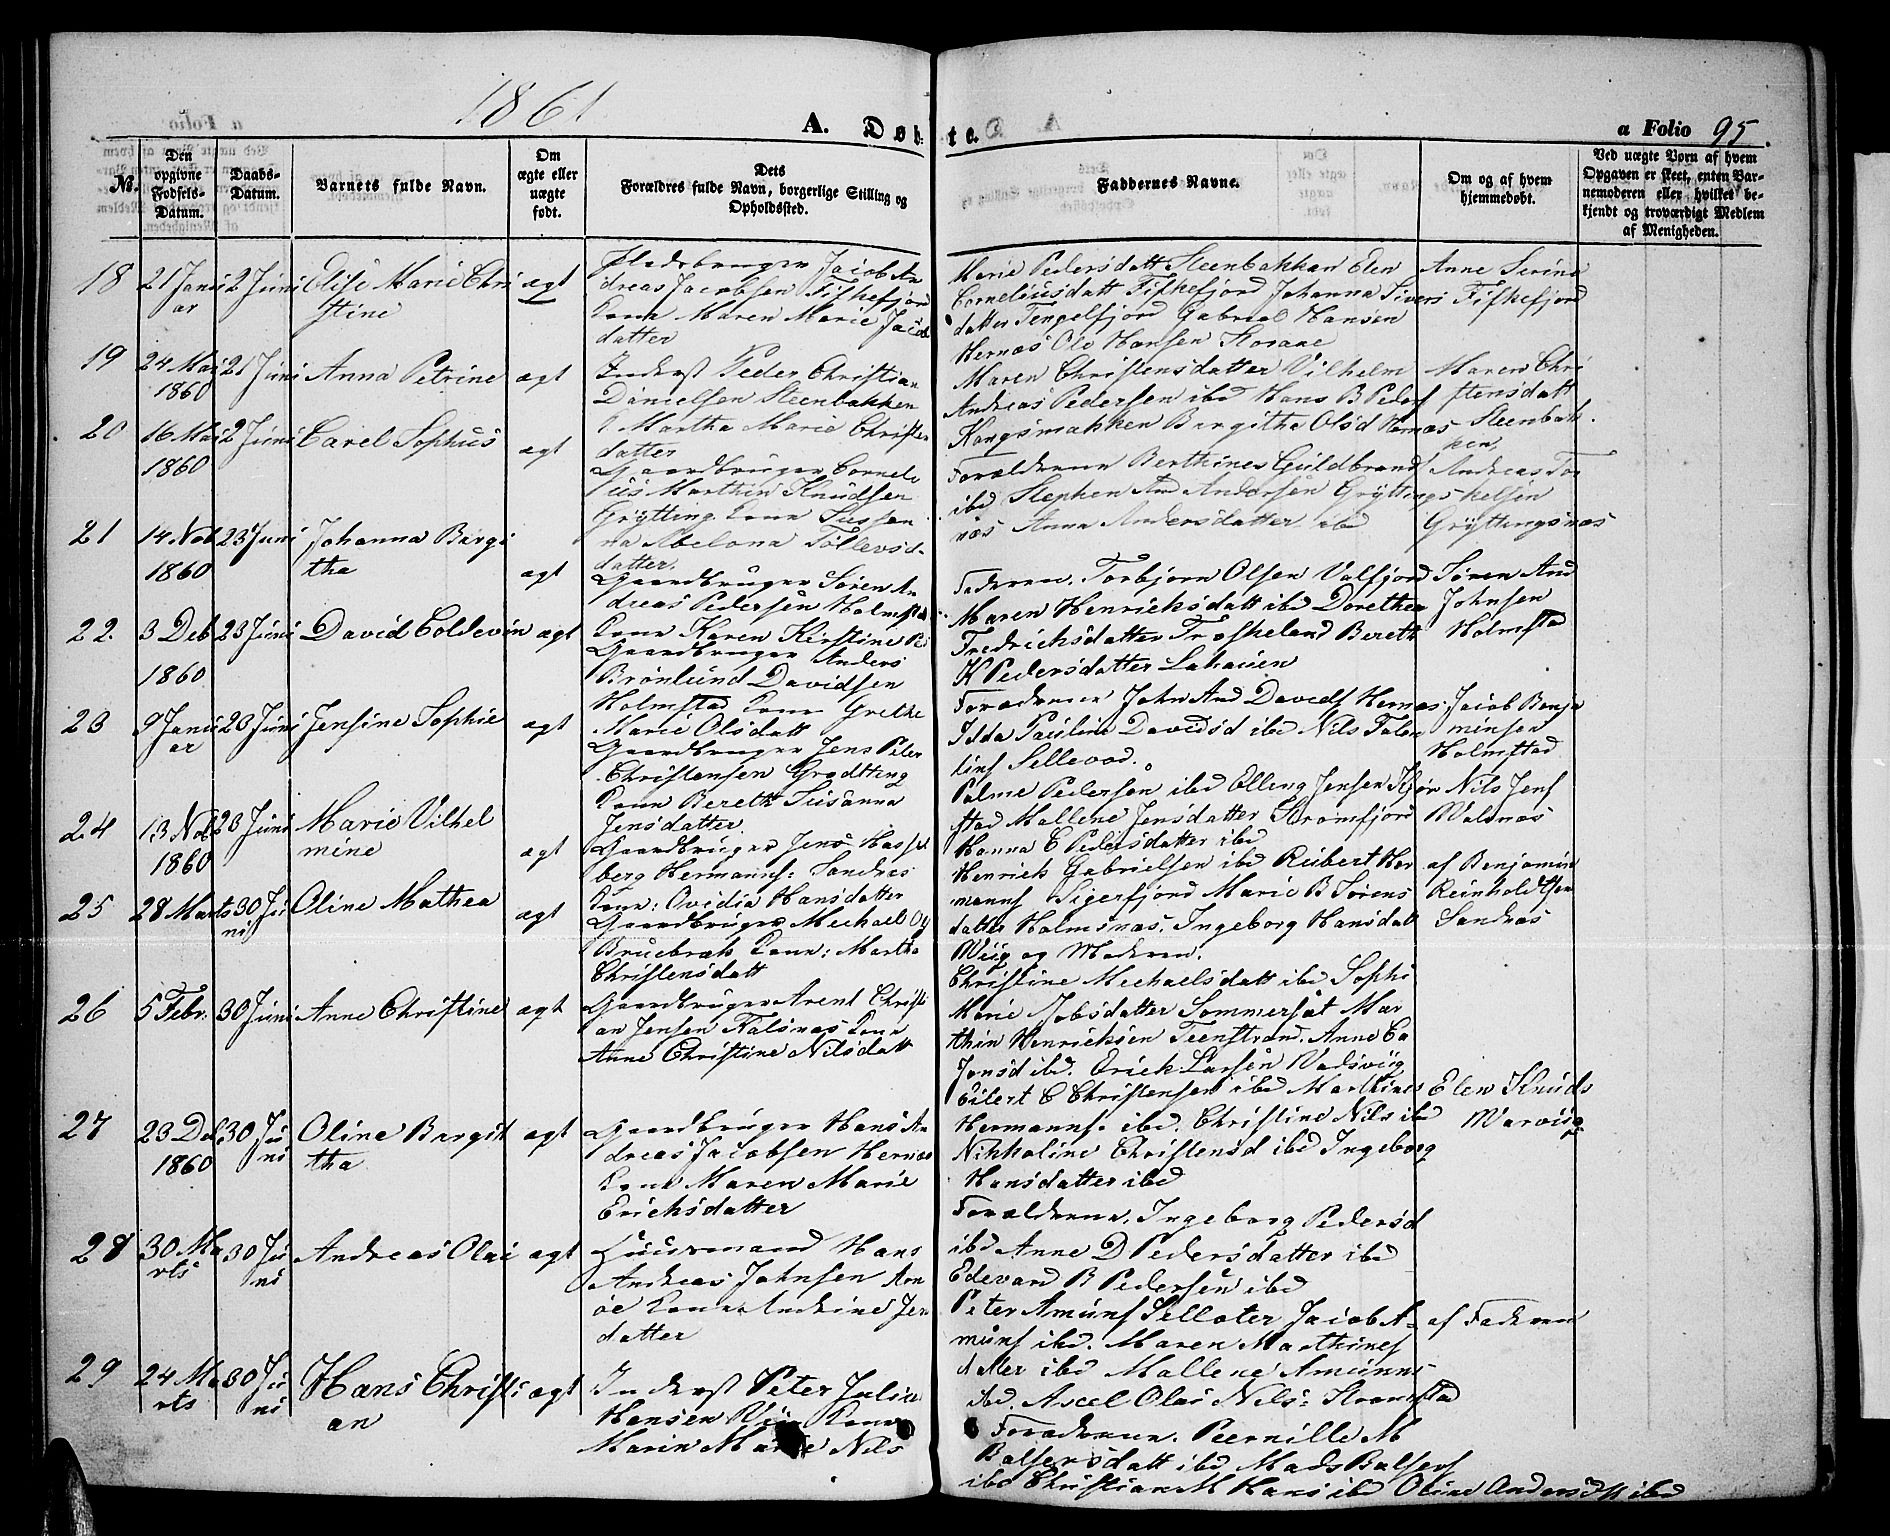 1861
A. Døbte.
a Folio 95.
No.
Den opgivne Fødsels-Datum.
Daabs-Datum.
Barnets fulde Navn.
Om ægte eller uægte født.
Dets Forældres fulde Navn, borgerlige Stilling og Opholdssted.
Faddernes Navne.
Om og af hvem hjemmedøbt.
Ved uægte Børn af hvem Opgaven er skeet, enten Barnemoderen eller hvilket bekjendt og troværdigt Medlem af Menigheden.
18
21 Janu
ar
2 Juni
Elise Marie Chri
stine
ægt
Jacob An
dreas Jacobsen Fiskefjord
Kone Maren Marie Jacob
datter
Marie Pedersdatt Steenbakken Elen
Corneliusdatt Fiskefjord Johanna Sivers
datter Tengelfjord Gabriel Hansen
Hernæs Ole Hansen Storane
Anne Serine
Fiskefjord
19
24 Mai
1860
21 Juni
Anna Petrine
ægt
Inderst Peder Christian
Danielsen Steenbakken
Martha Marie Christen
datter
Maren Christensdatter Vilhelm
Andreas Pedersen ibd Hans B Peders
Kongsmakken Birgitha Olsd Hernæs
Maren Chri
stensdatt
Steenbak
ken,
20
16 Mai
1860
2 Juni
Carel Sophus
ægt
Gaardbruger Corneli
us Marthin Knudsen
Grytting Kone Sussan
na Abelona Tollevsd
datter.
Forældrene Berthines Guldbrands
ibd Stephen And Andersen Gryttings
næs Anna Andersdatter ibd
Andreas Tor
kelsen
Gryttingsnæs
21
14 Nob
1860
23 Juni
Johanna Birgi
tha
ægt
Gaardbruger Søren An
dreas Pedersen Holmstad
Kone Karen Kirstine
Faderen. Torbjørn Olsen Valfjord
Maren Henricksdatt ibd Dorethea
Fredricksdatter Træskeland Bereth
K Pedersdatter Lahauen
Søren And
Johnsen
Holmstad
22.
3 Deb
1860
23 Juni
David Coldevin
ægt
Gaardbruger Anders
Brønlund Davidsen
Holmstad Kone Grethe
Marie Olsdatt
Forældrene John And Davids Hernæs
Ilda Pauline Davidsd ibd Nils Falen
tins Sellevod.
Jacob Benja
minsen
Holmstad
23
9 Janu
ar
23 Juni
Jensine Sophie
ægt
Gaardbruger Jens Peter
Christensen Grødtting
Kone Bereth Susanna
Jensdatter
Palme Pedersen ibd Elling Jensen Kjør
stad Mallene Jensdatter Strømfjord
Hanna C Pedersdatter ibd
Nils Jens
Walsnæs
24
13 Nob
1860
23 Juni
Marie Vilhel
mine
ægt
Gaardbruger Jens Hassel
berg Hermanns: Sandnæs
Kone: Ovidia Hansdatter
Henrich Gabrielsen ibd Rubert Her
manns Sigerfjord Marie B Sørens
datter Holmsnæs, Ingeborg Hansdatt
Wiig og Moderen.
af Benjamin
Reinholdtsen
Sandnæs
25
28 Marts
30 Ju
ni
Oline Mathea
ægt
Gaardbruger Mechael Ols
Bruebræk Kone: Martha
Christensdatt
Christine Mechaelsdatt ibd Sophi
Marie Jobsdatter Sommersæt Mar
thin Henricksen Teenstrand. Anne Ca
Jensd ibd. Erick Larsen Vadsviig
26
5 Febr.
30 Juni
Anne Christine
ægt
Gaardbruger Arent Christi
an Jensen Falsnæs Kone
Anne Christine Nilsdatt
Eilert C Christensen ibd Marthines
Hermanns. ibd. Christine Nils ibd
Nikkoline Christensd ibd Ingeborg
Hansdatter ibd
Elen Knuds
Warviig
27
23 Deb.
1860
30 Ju
ni
Oline Birgit
tha
ægt
Gaardbruger Hans An
dreas Jacobsen Hernæs
Kone Maren Marie
Ericksdatter
Forældrene, Ingeborg Pedersd
ibd Anne D Pedersdatter ibd
Edevard B Pedersen ibd
28
30 Ma
rts
30 Ju
ni
Andreas Olai
ægt
Huusmand Hans
Andreas Johnsen Arn
øe Kone Andrine Jen
datter
Peter Amuns Selloter Jacob A-
muns ibd. Maren Marthines
datter ibd Mallene Amunns
ibd. Axcel Olai Nils: Strømstad
af Faderen
29
24 Ma
rts
30 Ju
ni
Hans Christi
an
ægt
Inderst Peter Julin
Hansen Kone
Marin Marie Nils
Forældrene. Peernille M
Balsersdatt ibd Mads Balsers
ibd Christian M Hans ibd Oline Andersdtt ibd